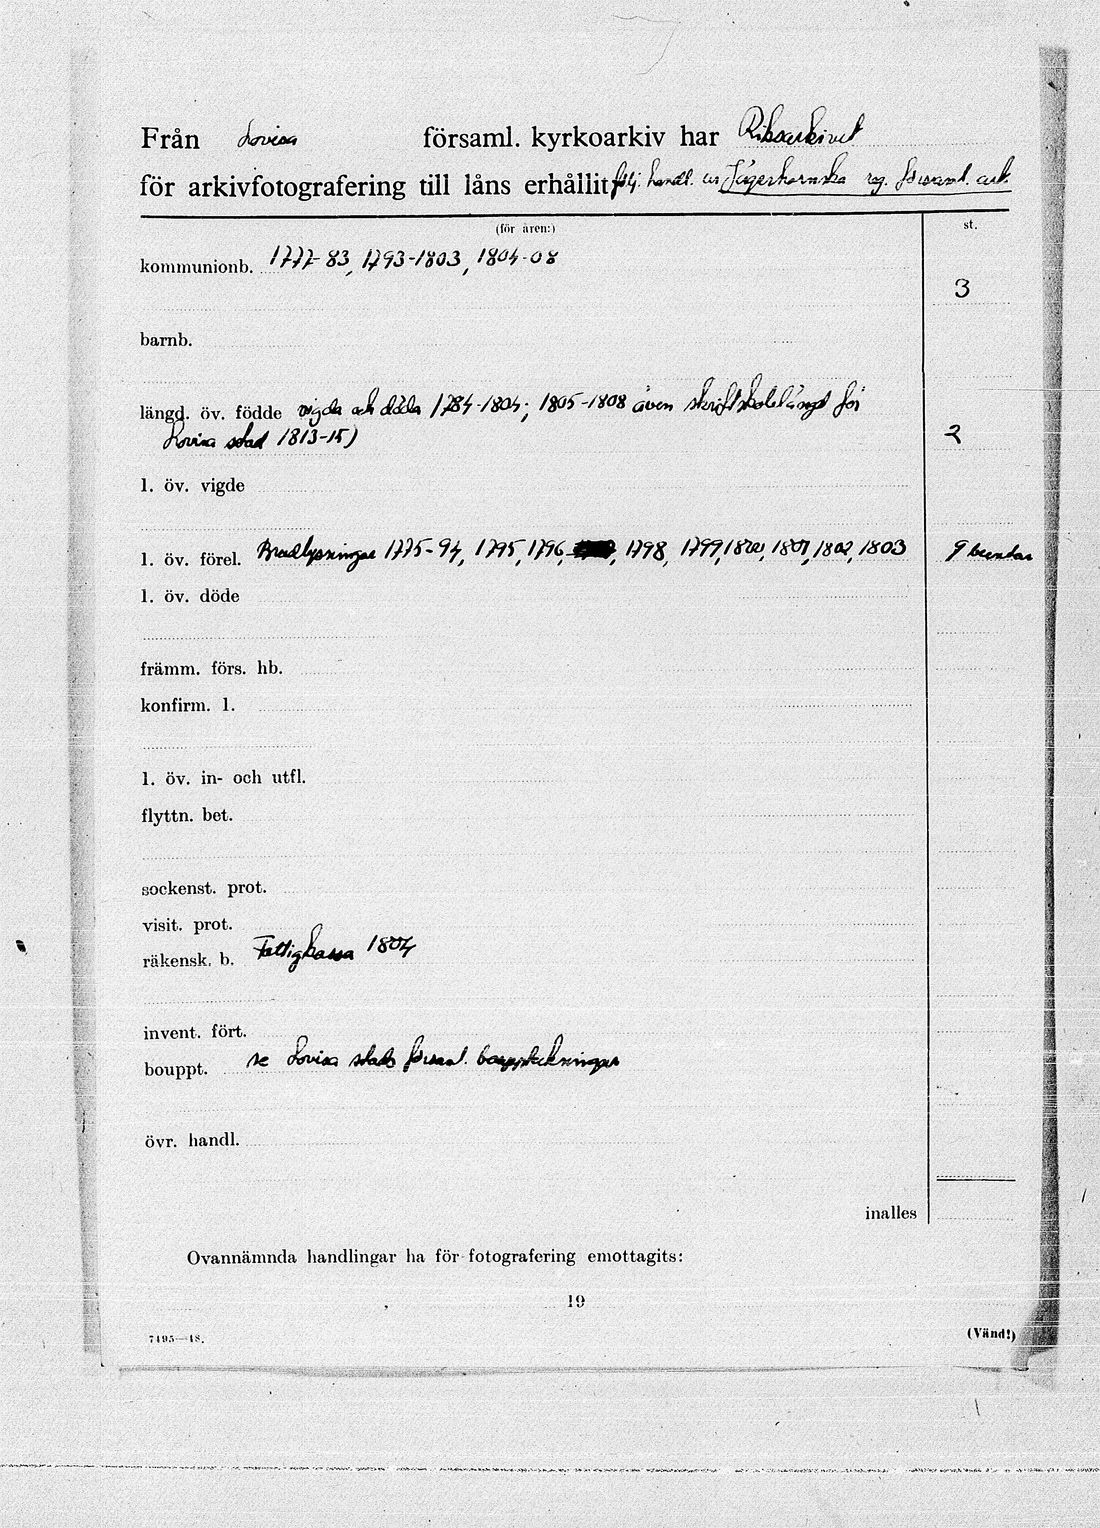 Från Lovisa församl. kyrkoarkiv har Riksarkivet
för arkivfotografering till låns erhållit följ. handl. ur Jägerhornska reg. församl. ark.
(för åren:) st.
kommunionb. 1777-83, 1793-1803, 1804-08
3
barnb.
längd. öv. födde vigda och döda 1784-1804; 1805-1808 även skriftskolelängd för
Lovisa stad 1813-15) 2
l. öv. vigde
l. öv. förel. Brudlysningar 1775-94, 1795, 1796, 1798, 1799, 1800, 1801, 1802, 1803 9 buntar
l. öv. döde
främm. förs. hb.
konfirm. l.
l. öv. in- och utfl.
flyttn. bet.
sockenst. prot.
visit. prot.
räkensk. b. Fattigkassa 1804
invent. fört.
bouppt. se Lovisa stads församl. bouppteckningar
övr. handl.
inalles
Ovannämnda handlingar ha för fotografering emottagits:
19
7495—48. (Vänd!)